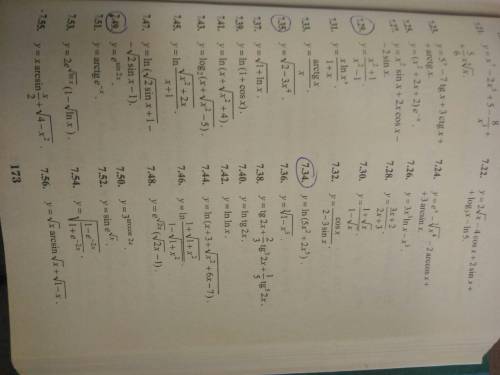 7.21. y = x⁵ − 2x⁴ + 5 − 8/x³ +
7.22. y = 2√x − 4 cos x + 2 sin x +
+ log₃x − ln 5.
7.23. y = 5ˣ − 7 lg x + 3 ctg x +
+ arctg x.
7.24.
+ 3 arcsin x.
7.25. y = (x² + 2x + 2)e⁻ˣ.
7.26. y = 3x³ ln x − x³.
7.27. y = x² sin x + 2x cos x −
− 2 sin x.
7.28.
7.29. y = (x² + 1)/(x² − 1).
7.30. y = (1 + √x)/(1 − √x).
7.31.
7.32. y = cos x/(2 − 3 sin x).
7.33. y = arctg x/x.
7.34. y = ln(5x² + 2x⁵).
7.35. y = √(2 − 3x⁴).
7.36. y = ∛(1 − x³).
7.37. y = √(1 + ln x).
7.38. y = tg 2x + 2/3 tg³ 2x + 1/5 tg⁵ 2x.
7.39. y = ln(1 + cos x).
7.40. y = ln tg 2x.
7.41. y = ln(x + √(x² + 4).
7.42. y = ln ln x.
7.43. y = log₂(x + √(x² − 5).
7.44. y = ln(x + 3 + √(x² + 6x − 7).
7.45. y = ln √(x² + 2x)/(x + 1).
7.46. y = ln (1 + √(1 + x²))/(1 − √(1 + x²)).
7.47. y = ln(√2 sin x + 1 −
− √2 sin x − 1).
7.48. y = e^√2x (√2x − 1).
7.49.
7.50. y = 3^arccos 2x.
7.51. y = arctg e⁻ˣ.
7.52. y = sin e^√x.
7.53. y = 2e^√ln x (1 − √ln x).
7.54. y = √((1 − e⁻²ˣ)/(1 + e⁻²ˣ)).
7.55. y = x arcsin x/2 +
7.56. y = √x arcsin √x + √(1 − x).
173